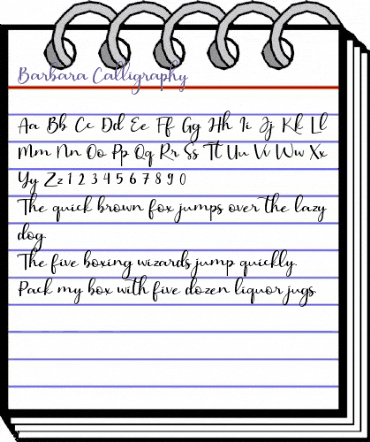 Barbara Calligraphy
Aa Bb Cc Dd Ee Ff Gg Hh Ii Jj Kk Ll
Mm Nn Oo Pp Qq Rr Ss Tt Uu Vv Ww Xx
Yy Zz 1 2 3 4 5 6 7 8 9 0
The quick brown fox jumps over the lazy
dog.
The five boxing wizards jump quickly.
Pack my box with five dozen liquor jugs.